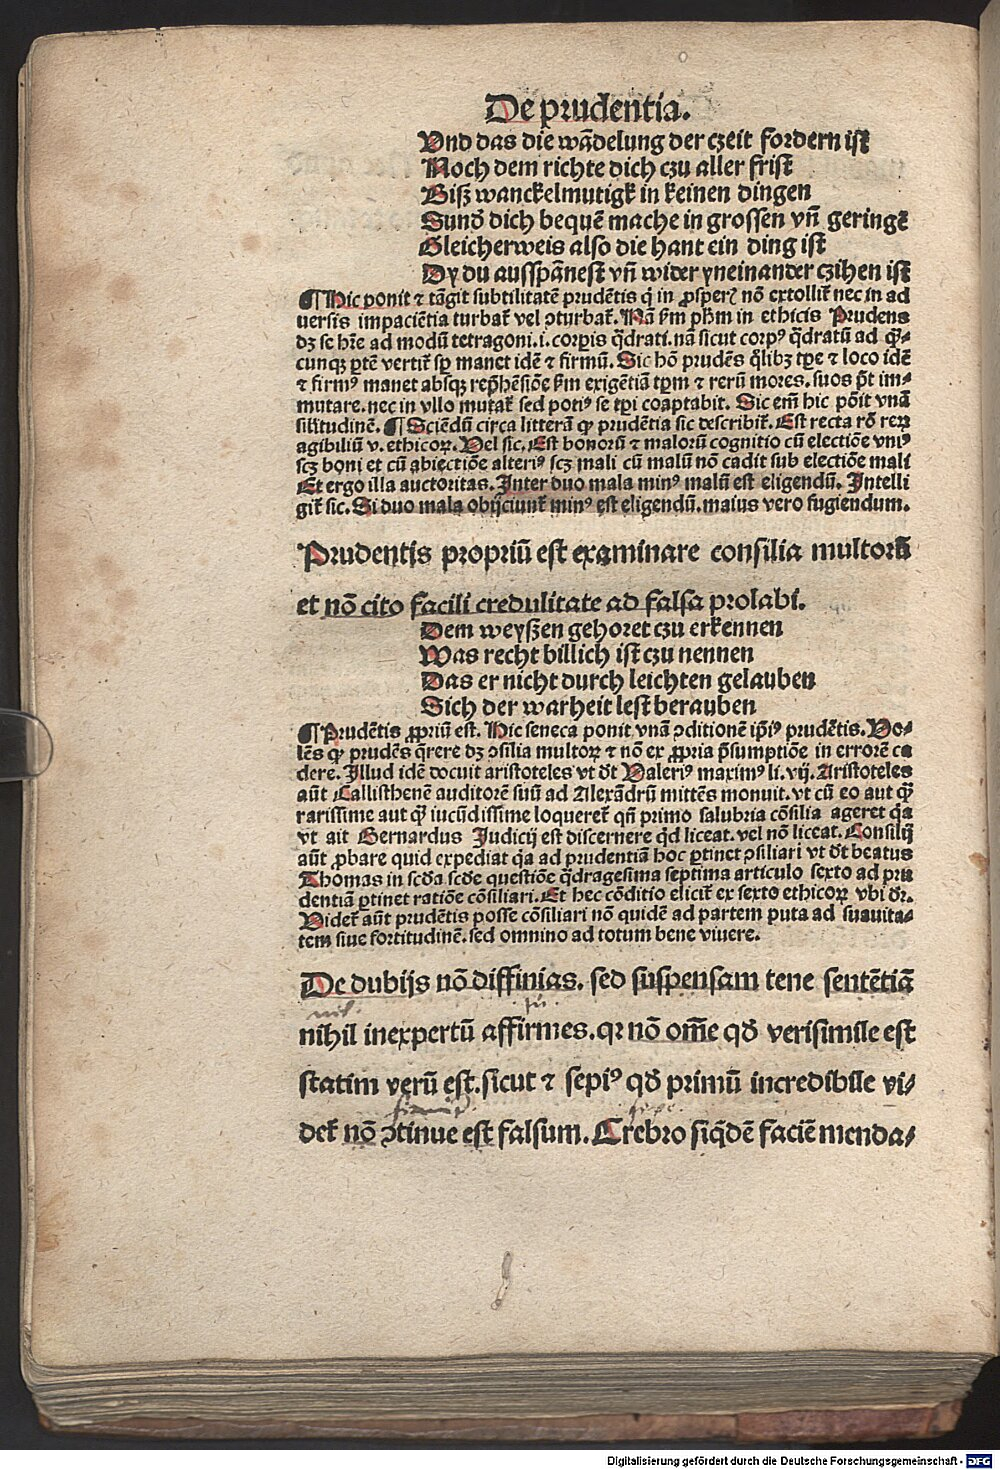 De prudentia.
Vnd das die wãdelung der czeit fordern ist
Noch dem richte dich czu aller frist
Biß wanckelmutigk in keinen dingen
Sunđ dich bequē mache in grossen vñ geringē
Gleicherweis also die hant ein ding ist
Dy du ausspãnest vñ wider yneinander czihen ist
¶ Hic ponit ⁊ tãgit subtilitatē prudētis q̇ in ꝓsperꝭ nõ extollit᷑ nec in ad
uersis impaciētia turbat᷑ vel ꝯturbat᷑. Nã ẜm pħm in ethicis Prudens
dꝫ se hr̄e ad modũ tetragoni. i. corꝑis q̃drati. nã sicut corpꝰ q̃dratũ ad q̃⸗
cunqꝫ ꝑtē vertit᷑ sꝑ manet idē ⁊ firmũ. Sic hõ prudēs q̃libꝫ tꝑe ⁊ loco idē
⁊ firmꝰ manet absqꝫ rep̄hēsiõe ẜm exigētiã tꝑm ⁊ rerũ mores. suos p̄t im⸗
mutare. nec in vllo mutat᷑ sed potiꝰ se tꝑi coaptabit. Sic em̄ hic põit vnã
sil̄itudinē. ¶ Sciēdũ circa litterã ꝙ prudētia sic describit᷑. Est recta rõ reꝝ
agibiliũ v. ethicoꝝ. Vel sic. Est bonorũ ⁊ malorũ cognitio cũ electiõe vniꝰ
scꝫ boni et cũ abiectiõe alteriꝰ scꝫ mali cũ malũ nõ cadit sub electiõe mali
Et ergo illa auctoritas. Inter duo mala minꝰ malũ est eligendũ. Intelli
git᷑ sic. Si duo mala obijciunt᷑ minꝰ est eligendũ. maius vero fugiendum.
Prudentis propriũ est examinare consilia multorũ
et nõ cito facili credulitate ad falsa prolabi.
Dem weyßen gehoret czu erkennen
Was recht billich ist czu nennen
Das er nicht durch leichten gelauben
Sich der warheit lest berauben
¶ Prudētis ꝓpriũ est. Hic seneca ponit vnã ꝯditionē ip̄iꝰ prudētis. Vo⸗
lēs ꝙ prudēs q̃rere dꝫ ꝯsilia multoꝝ ⁊ nõ ex ꝓpria p̄sumptiõe in errorē ca
dere. Illud idē docuit aristoteles vt dt̄ Valeriꝰ maximꝰ li. vij. Aristoteles
aũt Callisthenē auditorē suũ ad Alexãdrũ mittēs monuit. vt cũ eo aut q̃ꝫ
rarissime aut q̃ꝫ iucũdissime loqueret᷑ qñ primo salubria cõsilia ageret q̇a
vt ait Bernardus Judicij est discernere qđ liceat. vel nõ liceat. Consilij
aũt ꝓbare quid expediat q̇a ad prudentiã hoc ꝑtinet ꝯsiliari vt dt̄ beatus
Thomas in scđa scđe questiõe q̃dragesima septima articulo sexto ad pru
dentiã ꝑtinet ratiõe cõsiliari. Et hec cõditio elicit᷑ ex sexto ethicoꝝ vbi dr̄.
Videt᷑ aũt prudētis posse cõsiliari nõ quidē ad partem puta ad suauita⸗
tem siue fortitudinē. sed omnino ad totum bene viuere.
De dubijs nõ diffinias. sed suspensam tene sentētiã
nihil inexpertũ affirmes. qꝛ nõ om̄e qđ verisimile est
statim verũ est. sicut ⁊ sepiꝰ qđ primũ incredibile vi⸗
det᷑ nõ ꝯtinue est falsum. Crebro siq̇dē faciē menda⸗
Digitalisierung gefördert durch die Deutsche Forschungsgemeinschaft - DFG